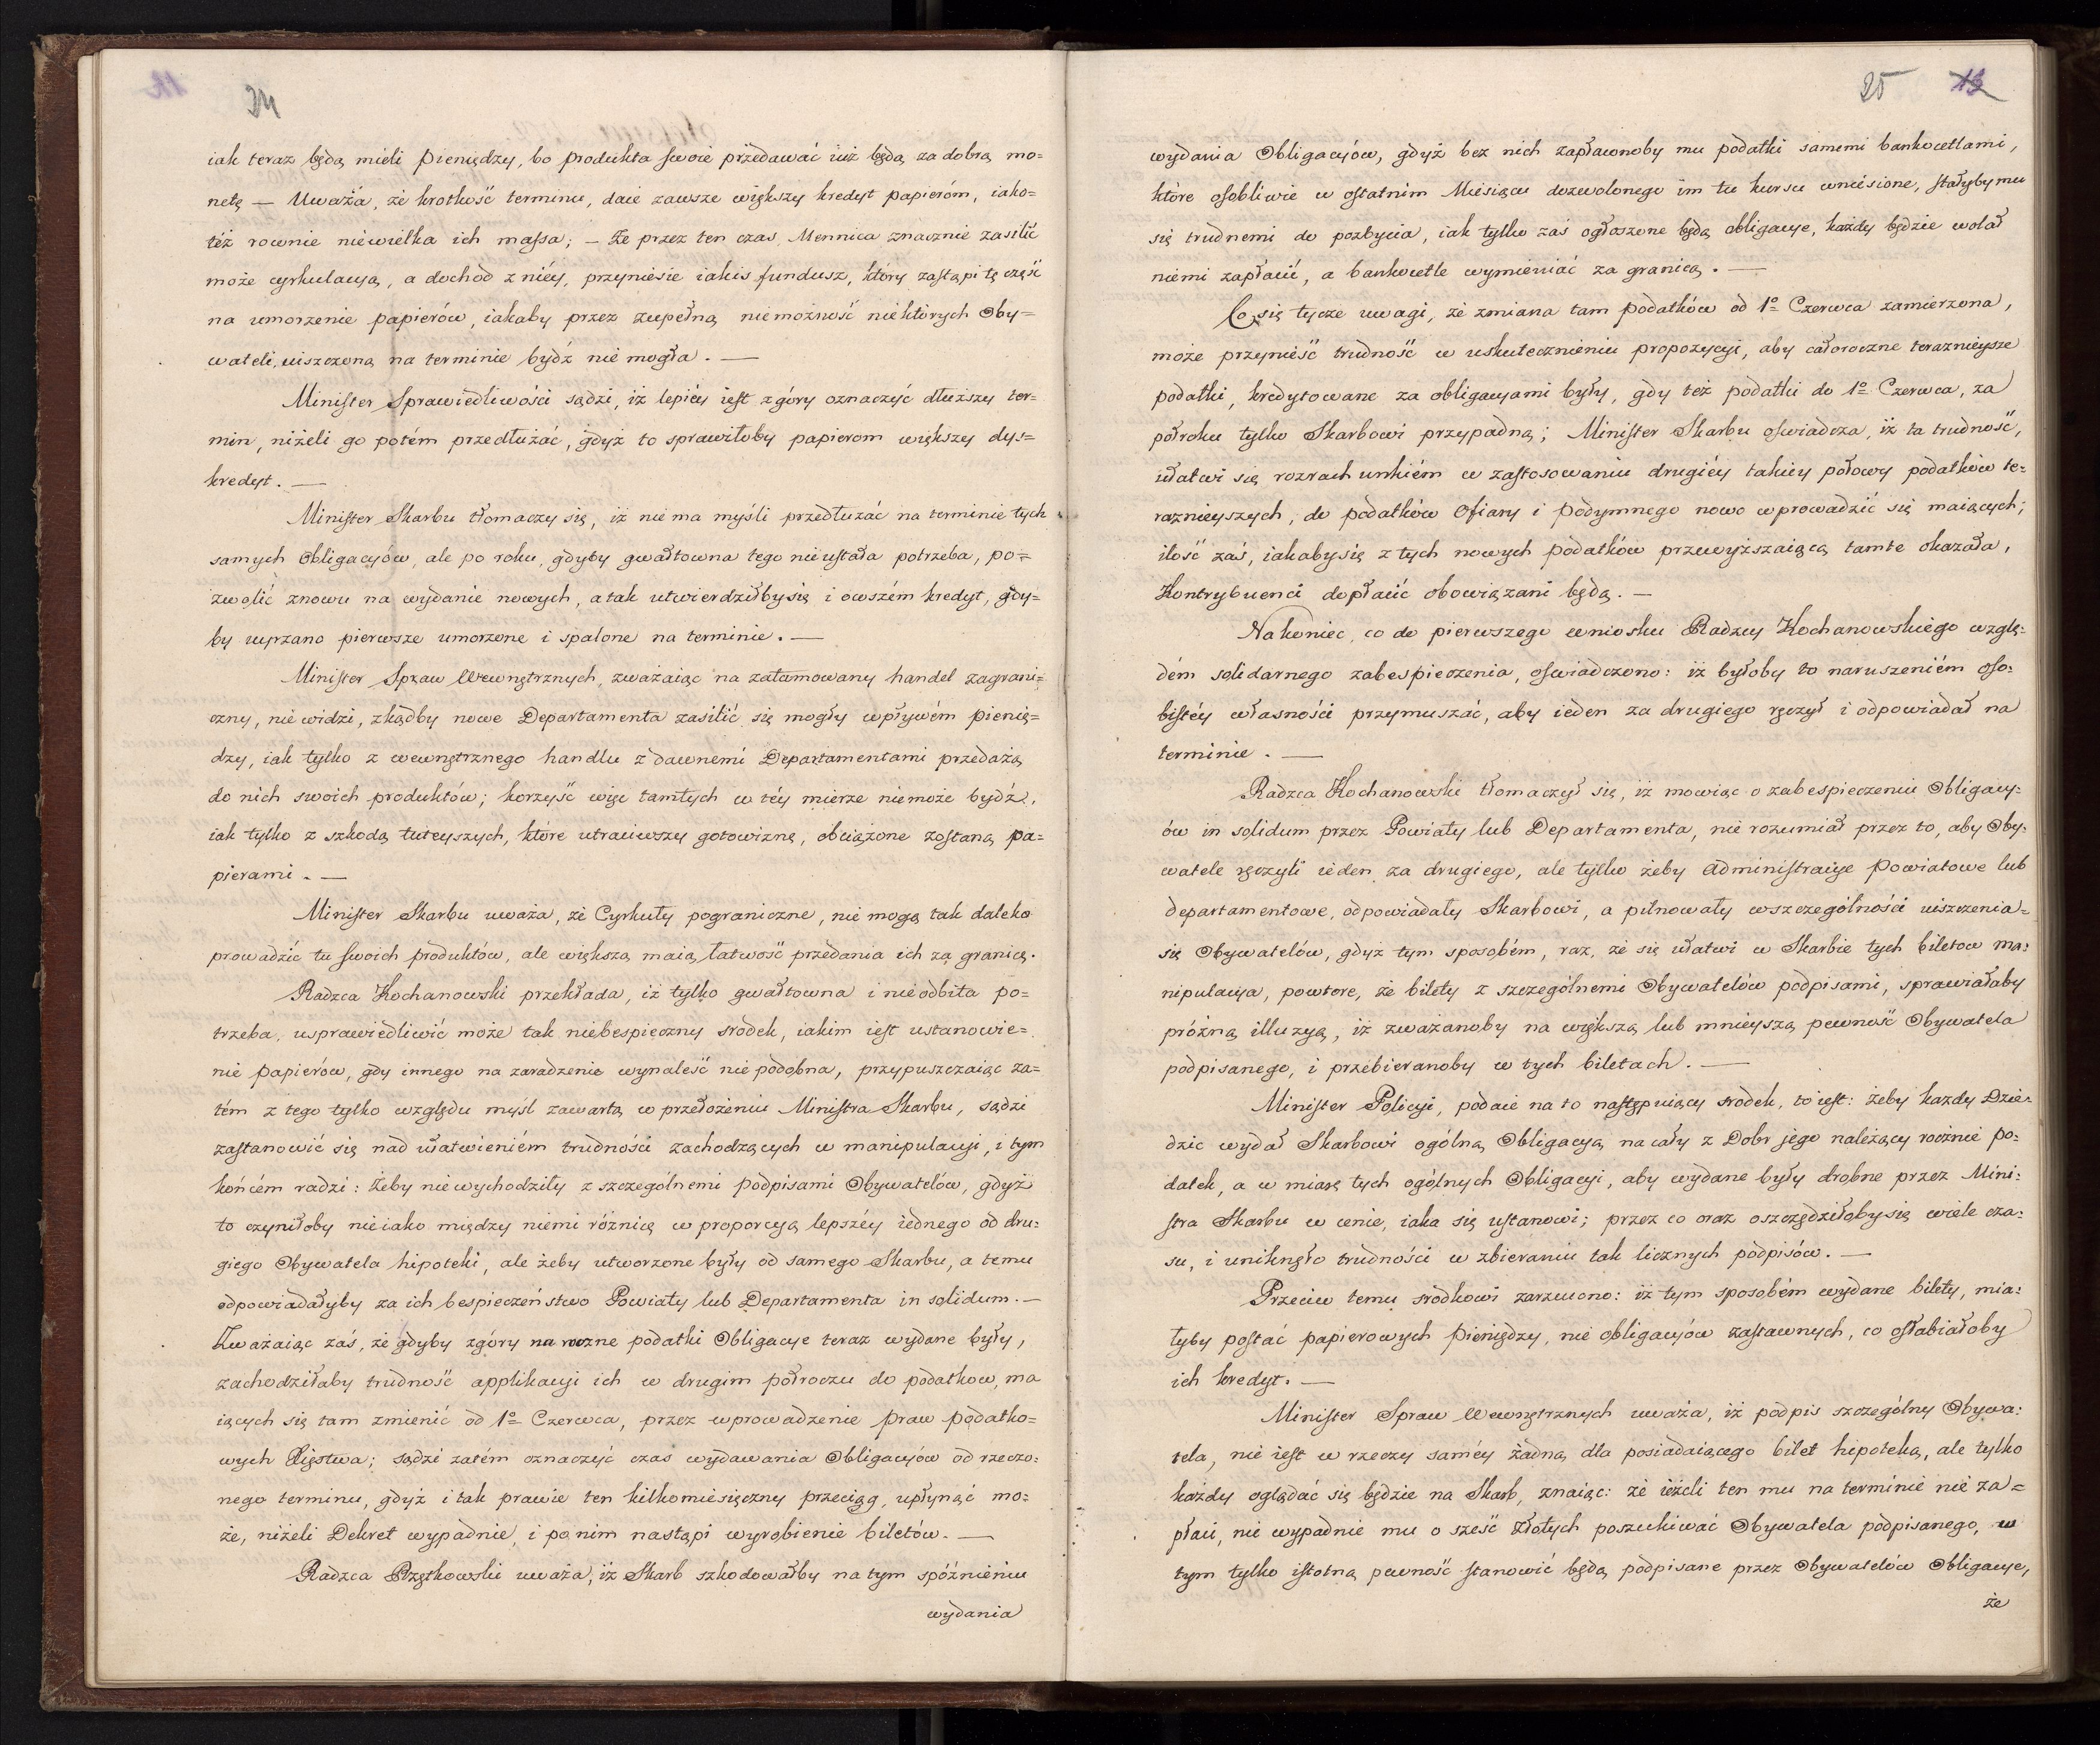 24
iak teraz będą mieli pieniędzy, bo produkta swoie przedawać iuż będą za dobrą mo=
netę — Uważa, że krotkość terminu, daie zawsze większy kredyt papieróm, iako=
téż rownie niewielka ich massa; — Że przez ten czas, Mennica znacznie zasilić
może cyrkulacyą, a dochód z niéy, przyniesie iakiś fundusz, który zastąpi tę część
na umorzenie papierów, iakaby przez zupełną niemożność niektórych Oby=
wateli, uiszczoną na terminie bydź nie mogła. —
Minister Sprawiedliwości sądzi, iż lepiéy iest z góry oznaczyć dłuższy ter=
min, niżeli go potém przedłużać, gdyż to sprawiłoby papierom większy dys=
kredyt. —
Minister Skarbu tłomaczy się, iż nie ma myśli przedłużać na terminie tych
samych Obligacyów, ale po roku, gdyby gwałtowna tego nie ustała potrzeba, po=
zwolić znowu na wydanie nowych, a tak utwierdziłby się i owszém kredyt, gdy=
by uyrzano pierwsze umorzone i spalone na terminie. —
Minister Spraw Wewnętrznych, zważaiąc na zatamowany handel zagrani=
czny, nie widzi, zkądby nowe Departamenta zasilić się mogły wpływém pienię=
dzy, iak tylko z wewnętrznego handlu z dawnemi Departamentami przedażą
do nich swoich produktów; korzyść więc tamtych w téy mierze nie może bydź,
iak tylko z szkodą tuteyszych, które utraciwszy gotowiznę, obciążone zostaną pa=
pierami. —
Minister Skarbu uważa, że Cyrkuły pograniczne, nie mogą tak daleko
prowadzić tu swoich produktów, ale większą maią łatwość przedania ich za granicę.
Radzca Kochanowski przekłada, iż tylko gwałtowna i nieodbita po=
trzeba, usprawiedliwić może tak niebespieczny srodek, iakim iest ustanowie=
nie papierów, gdy innego na zaradzenie wynaleść nie podobna, przypuszczaiąc za=
tém z tego tylko względu myśl zawartą w przełożeniu Ministra Skarbu, sądzi
zastanowić się nad ułatwieniém trudności zachodzących w manipulacyi, i tym
końcém radzi: żeby nie wychodziły z szczególnemi podpisami Obywatelów, gdyż
to czyniłoby nieiako między niemi różnicę w proporcyą lepszéy iednego od dru=
giego Obywatela hipoteki, ale żeby utworzone były od samego Skarbu, a temu
odpowiadałyby za ich bespieczeństwo Powiaty lub Departamenta in solidum. —
Zważaiąc zaś, że gdyby zgóry na roczne podatki Obligacye teraz wydane były,
zachodziłaby trudność applikacyi ich w drugim półroczu do podatków, ma
iących się tam zmienić od 1º Czerwca, przez wprowadzenie praw podatko=
wych Xięstwa; sądzi zatém oznaczyć czas wydawania Obligacyów od rzeczo=
nego terminu, gdyż i tak prawie ten kilkomiesięczny przeciąg, upłynąć mo=
że, niżeli Dekret wypadnie, i po nim nastąpi wyrobienie biletów. —
Radzca Rzętkowski uważa, iż Skarb szkodowałby na tym spóźnieniu
wydania
25
13
wydania Obligacyów, gdyż bez nich zapłaconoby mu podatki samemi bankocetlami,
które osobliwie w ostatnim Miesiącu dozwolonego im tu kursu wniesione, stałyby mu
się trudnemi do pozbycia, iak tylko zaś ogłoszone będą obligacye, każdy będzie wolał
niemi zapłacić, a bankocetle wymieniać za granicą. —
Co się tycze uwagi, że zmiana tam podatków od 1º Czerwca zamierzona,
może przynieść trudność w uskutecznieniu propozycyi, aby całoroczne teraznieysze
podatki, kredytowane za obligacyami były, gdy też podatki do 1º Czerwca, za
półroku tylko Skarbowi przypadną; Minister Skarbu oświadcza, iż ta trudność,
ułatwi się rozrachunkiém w zastosowaniu drugiéy takiey połowy podatków te=
raznieyszych, do podatków Ofiary i podymnego nowo wprowadzić się maiących;
ilość zaś, iakaby się z tych nowych podatków przewyższaiącą tamte okazała,
Kontrybuenci dopłacić obowiązani będą. —
Nakoniec, co do pierwszego wniosku Radzcy Kochanowskiego wzglę=
dém solidarnego zabespieczenia, oświadczono: iż byłoby to naruszeniém oso=
bistéy własności przymuszać, aby ieden za drugiego ręczył i odpowiadał na
terminie. —
Radzca Kochanowski tłomaczył się, iż mowiąc o zabespieczeniu Obligacy=
ów in solidum przez Powiaty lub Departamenta, nie rozumiał przez to, aby Oby=
watele ręczyli ieden za drugiego, ale tylko żeby Administracye Powiatowe lub
departamentowe, odpowiadały Skarbowi, a pilnowały wszczególności uiszczenia=
się Obywatelów, gdyż tym sposobém, raz, że się ułatwi w Skarbie tych biletow ma=
nipulacya, powtore, że bilety z szczególnemi Obywatelów podpisami, sprawiałaby
próżną illuzyą, iż zważanoby na większą lub mnieyszą pewność Obywatela
podpisanego, i przebieranoby w tych biletach. —
Minister Policyi, podaie na to następuiący srodek, to iest: żeby każdy Dzie=
dzic wydał Skarbowi ogólną Obligacyą na cały z Dobr jego należący rocznie po=
datek, a w miarę tych ogólnych Obligacyi, aby wydane były drobne przez Mini=
stra Skarbu w cenie, iaka się ustanowi; przez co oraz oszczędziłoby się wiele cza=
su, i uniknęło trudności w zbieraniu tak licznych podpisów. —
Przeciw temu srodkowi zarzucono: iż tym sposobém wydane bilety, mia=
łyby postać papierowych pieniędzy, nie obligacyów zastawnych, co osłabiałoby
ich kredyt. —
Minister Spraw Wewnętrznych uważa, iż podpis szczególny Obywa=
tela, nie iest w rzeczy saméy żadną dla posiadaiącego bilet hipoteką, ale tylko
każdy oglądać się będzie na Skarb, znaiąc: że ieżeli ten mu na terminie nie za=
płaci, nie wypadnie mu o sześć złotych poszukiwać Obywatela podpisanego, w
tym tylko istotną pewność stanowić będą podpisane przez Obywatelów Obligacye,
że